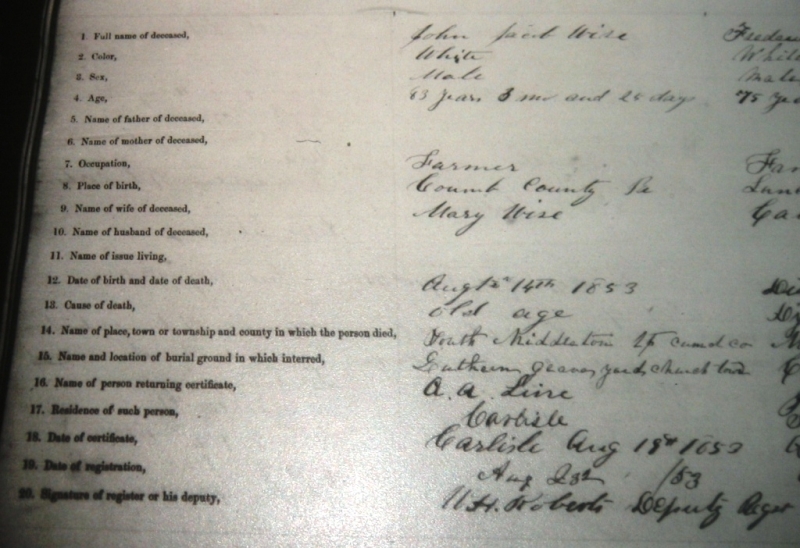 1. Full name of deceased, John Jacob Wise
2. Color, White Whit
3. Sex, Male Male
4. Age, 63 years 8 mo and 25 days 75
5. Name of father of deceased,
6. Name of mother of deceased,
7. Occupation, Farmer Far
8. Place of birth, County Pa
9. Name of wife of deceased, Mary Wise
10. Name of husband of deceased,
11. Name of issue living,
12. Date of birth and date of death, 14th 1853
13. Cause of death, old age
14. Name of place, town or township and county in which the person died, South Middleton Tp cumd co
15. Name and location of burial ground in which interred, Lutheran grave yard, church town
16. Name of person returning certificate, A. A. Line
17. Residence of such person, Carlisle
18. Date of certificate, Carlisle Aug 19th 1853
19. Date of registration, Aug 23d /53
20. Signature of register or his deputy, W. H. Roberts Deputy Reger